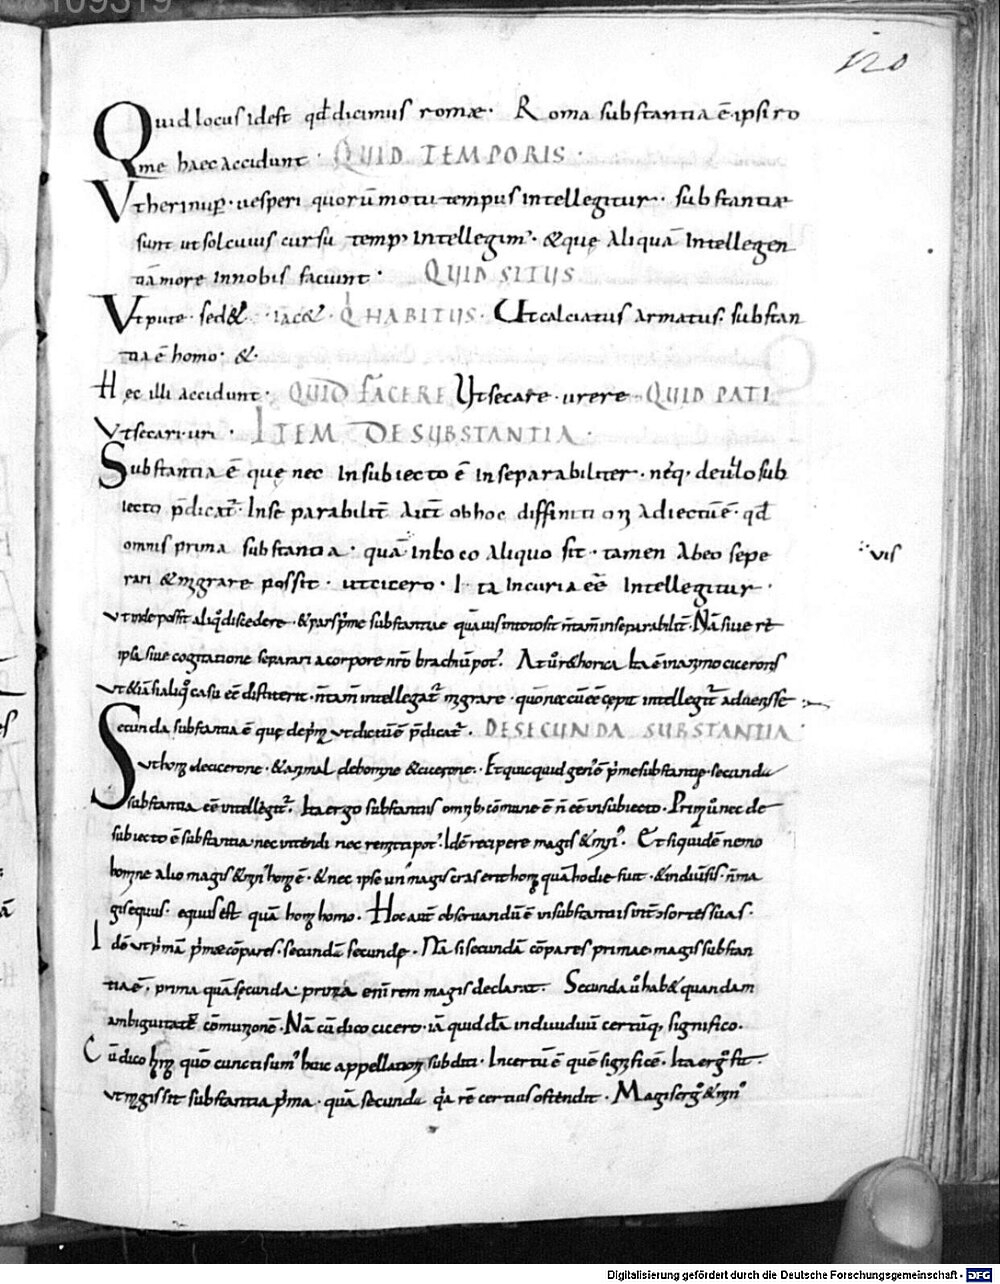 109319
120
Quid locus idest qđ dicimus romæ· Roma substantia ē· ipsi ro
me haec accidunt· QUID TEMPORIS·
Vt heri nup̄· uesperi quorū motu tempus intellegitur· substantiæ
sunt ut solcuius cursu temp' intellegim'· &quę Aliquā Intellegen
tiā more Innobis faciunt· QUID SITUS
Vt pute· sed& ·iac&· Q HABITUS· Ut calciatus armatus· substan
tia ē homo· &·
Hęc illi accidunt· QUID FACERE Ut secare· urere QUID PATI
Vt secari· uri· ITEM DE SUBSTANTIA·
Substantia ē quę nec In subiecto ē Inseparabiliter· neq· de ullo sub
iecto p̄dicat̄· Inse parabilit̄ Aut̄ ob hoc diffinitioni Adiectū ē· qđ
omnis prima substantia· quā In loco Aliquo sit· tamen Abeo sepe
·vis
rari & migrare possit· ut cicero· Ita Incuria eē Intellegitur·
ut inde possit aliq discedere· & pars prime substantiae quāuis intoto sit n̄ tam̄ inseparabilit̄· Nā siue rē
ipsā siue cogitatione separari a corpore nr̄o brachiū pot'·
Secunda substantia ē quę de prim ut dictū ē p̄dicat̄· DE SECUNDA SUBSTANTIA
Vt hom̄ de cicerone· & animal de homine & cicerone· Et quicquid gen' ē prime substantię secunda
substantia eē intellegit̄· Ita ergo substantiis omib' cōmune ē n̄ eē in subiecto· Primū nec de
subiecto ē substantia nec intendi nec remitti pot'· Idē recipere magis & min'· Et siquidē nemo
homine alio magis & min' homo ē· & nec ipse un' magis cras erit homo quā hodie fuit·
gis equus· equus est quā homo homo· Hoc aut̄ obseruandū ē in substantiis int̄ consortes suas·
Idē ut primā prime cōpares· secundā secundę· Nā si secundā cōpares primae· magis substan
tia ē, prima quā secunda· prima enī rem magis declarat· Secunda ū hab& quandam
ambiguitatē cōmunionē· Nā cū dico cicero· iā quiddā indiuiduū certūq, significo·
Cū dico hom̄ quō cuncti sum' huic appellationi subditi· Incertū ē quē significē· Ita ergo fit·
ut magis sit substantia prima· quā secunda quia rē certius ostendit· Magis ergo & min'
Digitalisierung gefördert durch die Deutsche Forschungsgemeinschaft · DFG